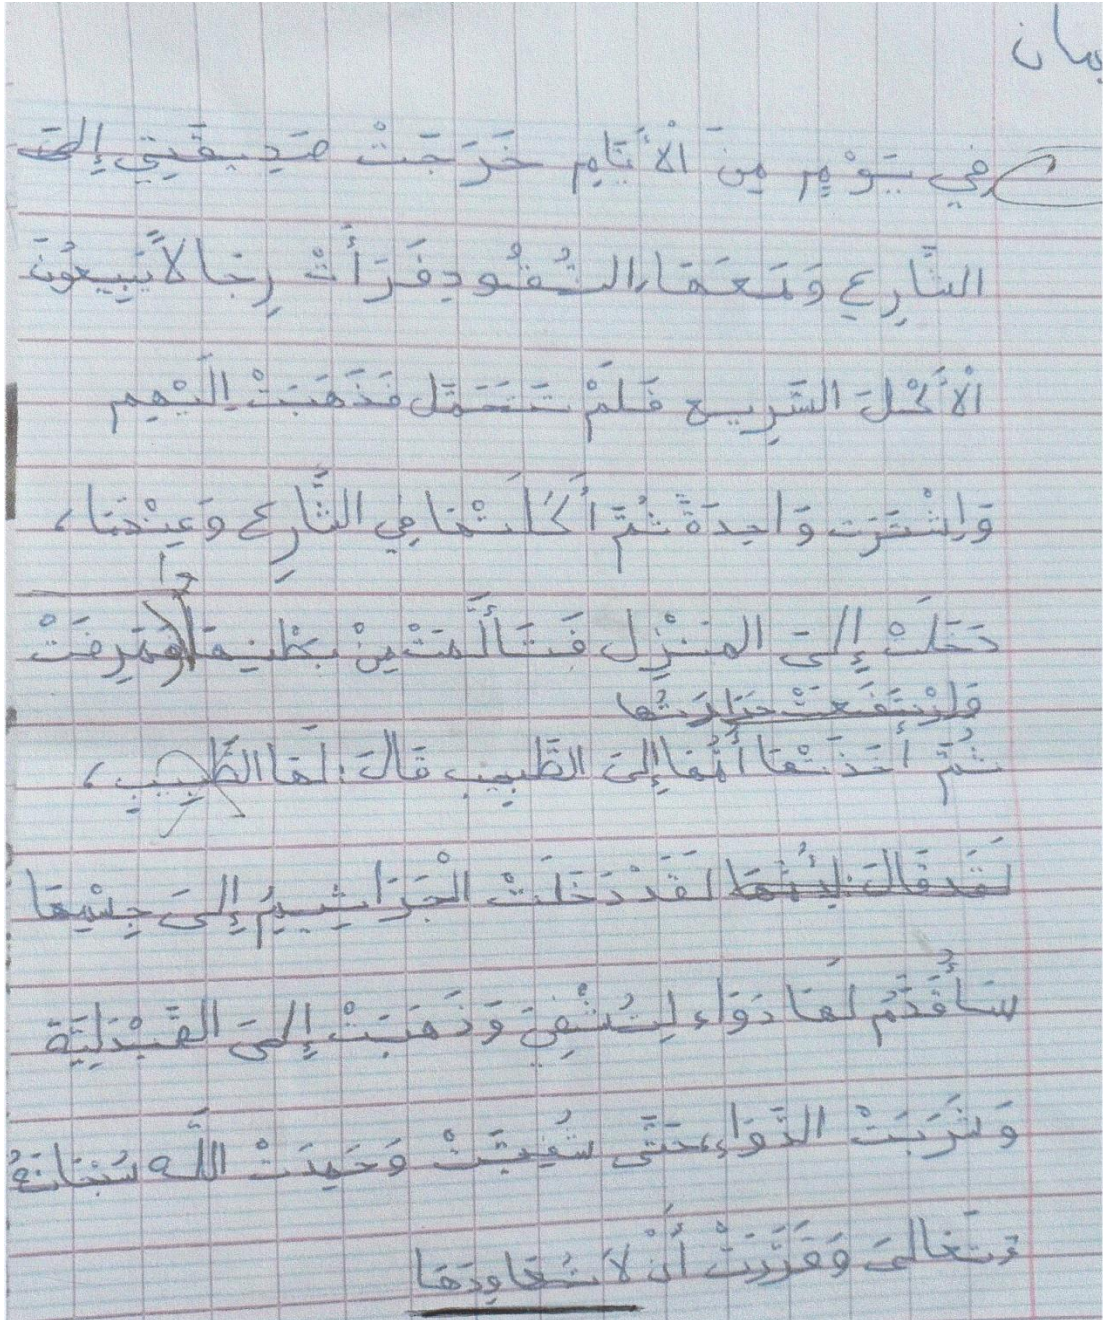 في يَوْمٍ مِنَ الْأَيَّامِ خَرَجَتْ صَدِيقَتِي إِلَى
الشَّارِعِ وَمَعَهَا النُّقُود فَرَأَتْ رِجَالاً يَبِيعُونَ
الْأَكْلَ السَّرِيع فَلَمْ تَتَحَمَّل فَذَهَبَتْ إِلَيْهِم
وَاِشْتَرَت وَاحِدَةً ثُمَّ أَكَلَتْهَا فِي الشَّارِعِ وَعِنْدَمَا،
دَخَلَتْ إِلَى المَنْزِل فَتَأَلَّمَتْ مِنْ بَطْنِهَا وَمَرِضَتْ
وَاِرْتَفَعَتْ حَرَارَتُهَا
ثُمَّ أَخَذَتْهَا أُمُّهَا إِلَى الطَّبِيبِ قَالَ: لَهَا الطَّبِيبِ،
لَقَدْ دَخَلَتْ الْجَرَاثِيمُ إِلَى جِسْمِهَا
سَأُقَدِّمُ لَهَا دَوَاء لِتُشْفِيَ وَذَهَبَتْ إِلَى الصَّيْدَلِيَّة
وَشَرِبَتْ الدَّوَاء حَتَّى شُفِيَتْ وَحَمِدَتْ اللَّه سُبْحَانَهُ
وَتَعَالَى وَقَرَّرَتْ أَنْ لَا تُعَاوِدَهَا